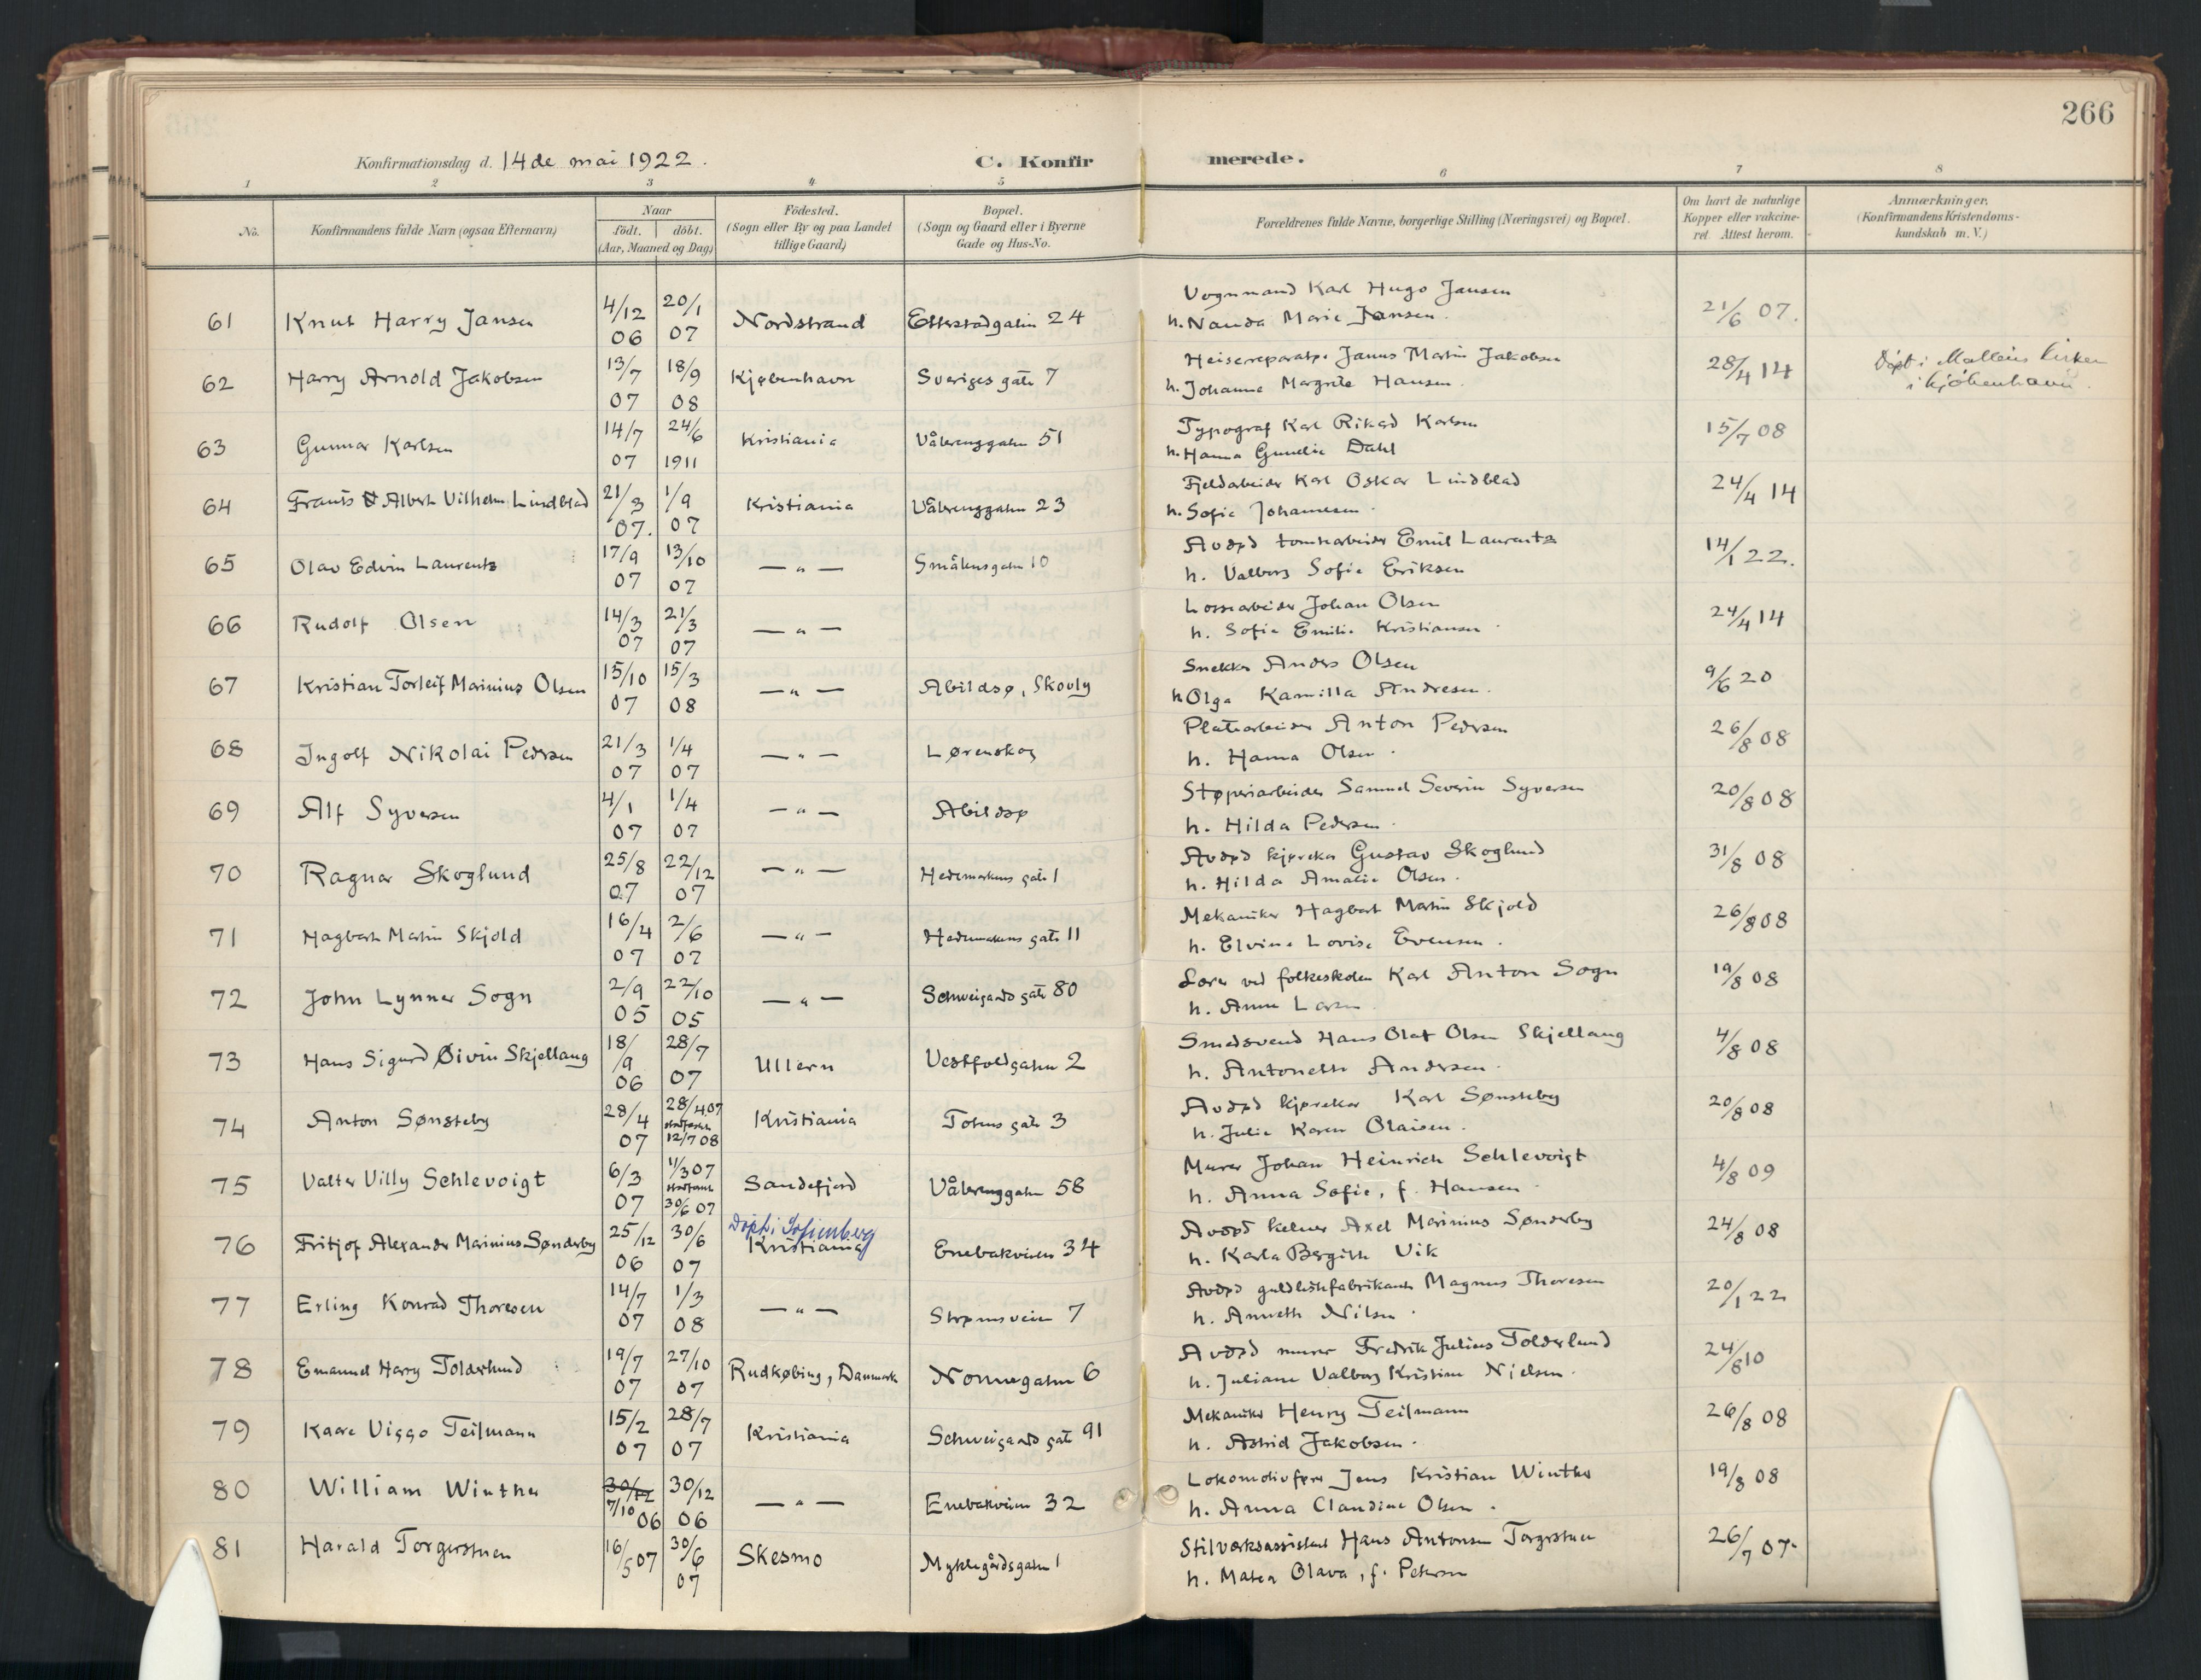 266
Konfirmationsdag d. 14de mai 1922.
C. Konfirmerede.
1 2 3 4 5 6 7 8
No. Konfirmandens fulde Navn (ogsaa Efternavn) Naar födt. döbt. (Aar, Maaned og Dag) Födested. (Sogn eller By og paa Landet tillige Gaard) Bopæl. (Sogn og Gaard eller i Byerne Gade og Hus-No. Forældrenes fulde Navne, borgerlige Stilling (Næringsvei) og Bopæl. Om havt de naturlige Kopper eller vakcineret. Attest herom. Anmærkninger. (Konfirmandens Kristendomskundskab m. V.)
61 Knut Harry Jansen 4/12 06 20/1 07 Nordstrand Etterstadgaten 24 Vognmand Karl Hugo Jansen
h. Nanda Marie Jansen. 21/6 07.
62 Harry Arnold Jakobsen 13/7 07 18/9 08 Kjøbenhavn Sveriges gate 7 Heisereparatør Janus Martin Jakobsen
h. Johanne Margrete Hansen. 28/4 14 Döpt i Matteus kirken
i Kjöbenhavn.
63 Gunnar Karlsen 14/7 07 24/6 1911 Kristiania Vålerenggaten 51 Typograf Karl Rikard Karlsen
h. Hanna Gunelie Dahl 15/7 08
64 Frants Albert Vilhelm Lindblad 21/3 07. 1/9 07 Kristiania Vålerenggaten 23 Fjeldarbeider Karl Oskar Lindblad
h. Sofie Johannesen. 24/4 14
65 Olav Edvin Laurentz 17/9 07 13/10 07 — " — Smålensgaten 10 Avdød tomtearbeider Emil Laurentz
h. Valborg Sofie Eriksen 14/1 22.
66 Rudolf Olsen 14/3 07 21/3 07 — " — Lossearbeider Johan Olsen
h. Sofie Emilie Kristiansen. 24/4 14
67 Kristian Torleif Marinius Olsen 15/10 07 15/3 08 — " — Abildsø, Skovly Snekker Anders Olsen
h Olga Kamilla Andresen. 9/6 20
68 Ingolf Nikolai Pedersen 21/3 07 1/4 07 — " — Lørenskog Platearbeider Anton Pedersen
h. Hanna Olsen. 26/8 08
69 Alf Syversen 4/1 07 1/4 07 — " — Abildsø Støperiarbeider Samuel Severin Syversen
h. Hilda Pedersen. 20/8 08
70 Ragnar Skoglund 25/8 07 22/12 07 — " — Hedemarkens gate 1 Avdød kjørekar Gustav Skoglund
h. Hilda Amalie Olsen. 31/8 08
71 Hagbart Martin Skjold 16/4 07 2/6 07 — " — Hedemarkens gate 11 Mekaniker Hagbart Martin Skjold
h. Elvine Lovise Evensen. 26/8 08
72 John Lynner Sogn 2/9 05 22/10 05 — " — Schweigaards gate 80 Lærer ved folkeskolen Karl Anton Sogn
h. Anne Larsen 19/8 08
73 Hans Sigurd Øivin Skjellaug 18/9 06 28/7 07 Ullern Vestfoldgaten 2 Smedsvend Hans Olaf Olsen Skjellaug
h. Antonette Andersen. 4/8 08
74 Anton Sønsteby 28/4 07 28/4 07 stadfestet 12/7 08 Kristiania Totens gate 3 Avdød kjørekar Karl Sønsteby
h. Julie Karen Olaisen. 20/8 08
75 Valter Villy Schlevoigt 6/3 07 11/3 07 stadfestet 30/6 07 Sandefjord Vålerenggaten 58 Murer Johan Heinrich Schlevoigt
h. Anna Sofie, f. Hansen. 4/8 09
76 Fritjof Alexander Marinius Sønderby 25/12 06 30/6 07 Döpt i Sofienberg
Kristiania Enebakveien 34 Avdød kelner Axel Marinius Sønderby
h. Karla Bergitte Vik 24/8 08
77 Erling Konrad Thoresen 14/7 07 1/3 08 — " — Strømsveien 7 Avdød guldlistfabrikant Magnus Thoresen
h. Annette Nilsen. 20/1 22
78 Emanuel Harry Tolderlund 19/7 07 27/10 07 Rudkøbing, Danmark Nonnegaten 6 Avdød murer Fredrik Julius Tolderlund
h. Juliane Valborg Kristine Nielsen. 24/8 10
79 Kaare Viggo Teilmann 15/2 07 28/7 07 Kristiania Schweigaards gate 91 Mekaniker Henry Teilmann
h. Astrid Jakobsen. 26/8 08
80 William Winther 30/12 7/10 06 30/12 06 — " — Enebakveien 32 Lokomotivfører Jens Kristian Winther
h. Anna Claudine Olsen. 19/8 08
81 Harald Torgerstuen 16/5 07 30/6 07 Skesmo Myklegårdsgaten 1 Stilverksassistent Hans Antonsen Torgerstuen
h. Matea Olava, f. Petersen 26/7 07.